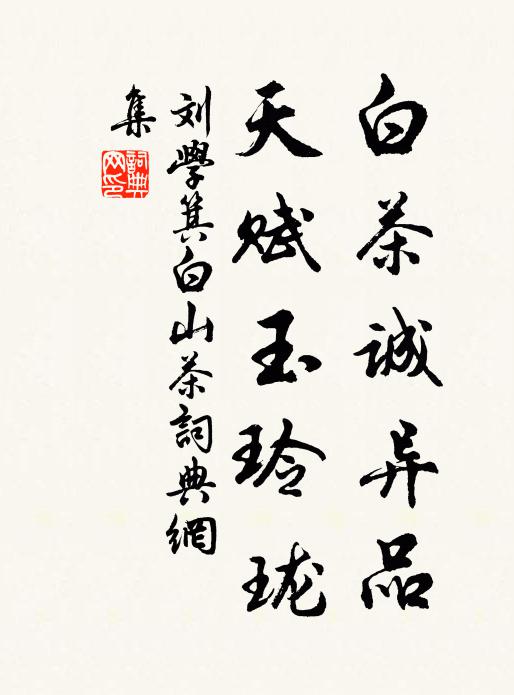 白茶诚异品
天赋玉玲珑
刘學箕白山茶詞典網
集
詞典
网印